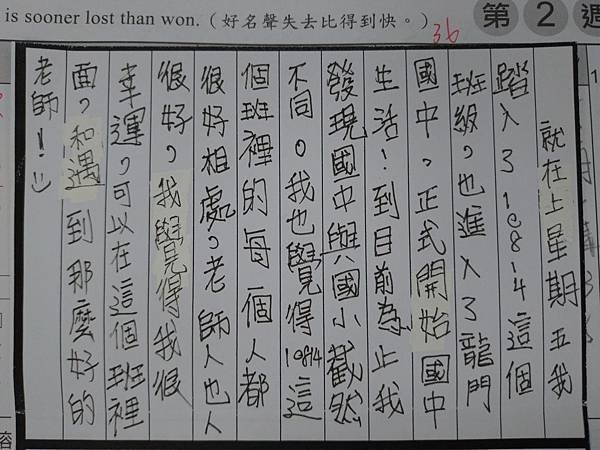 is sooner lost than won.（好名聲失去比得到快。）
36
第2週
就在上星期五我
踏入了10814這個
班級，也進入了龍門
國中，正式開始國中
生活！到目前為止我
發現國中與國小截然
不同。我也覺得10814這
個班裡的每一個人都
很好相處，老師人也人
很好，我覺得我很
幸運，可以在這個班裡
面，和遇到那麼好的
老師！:)
容